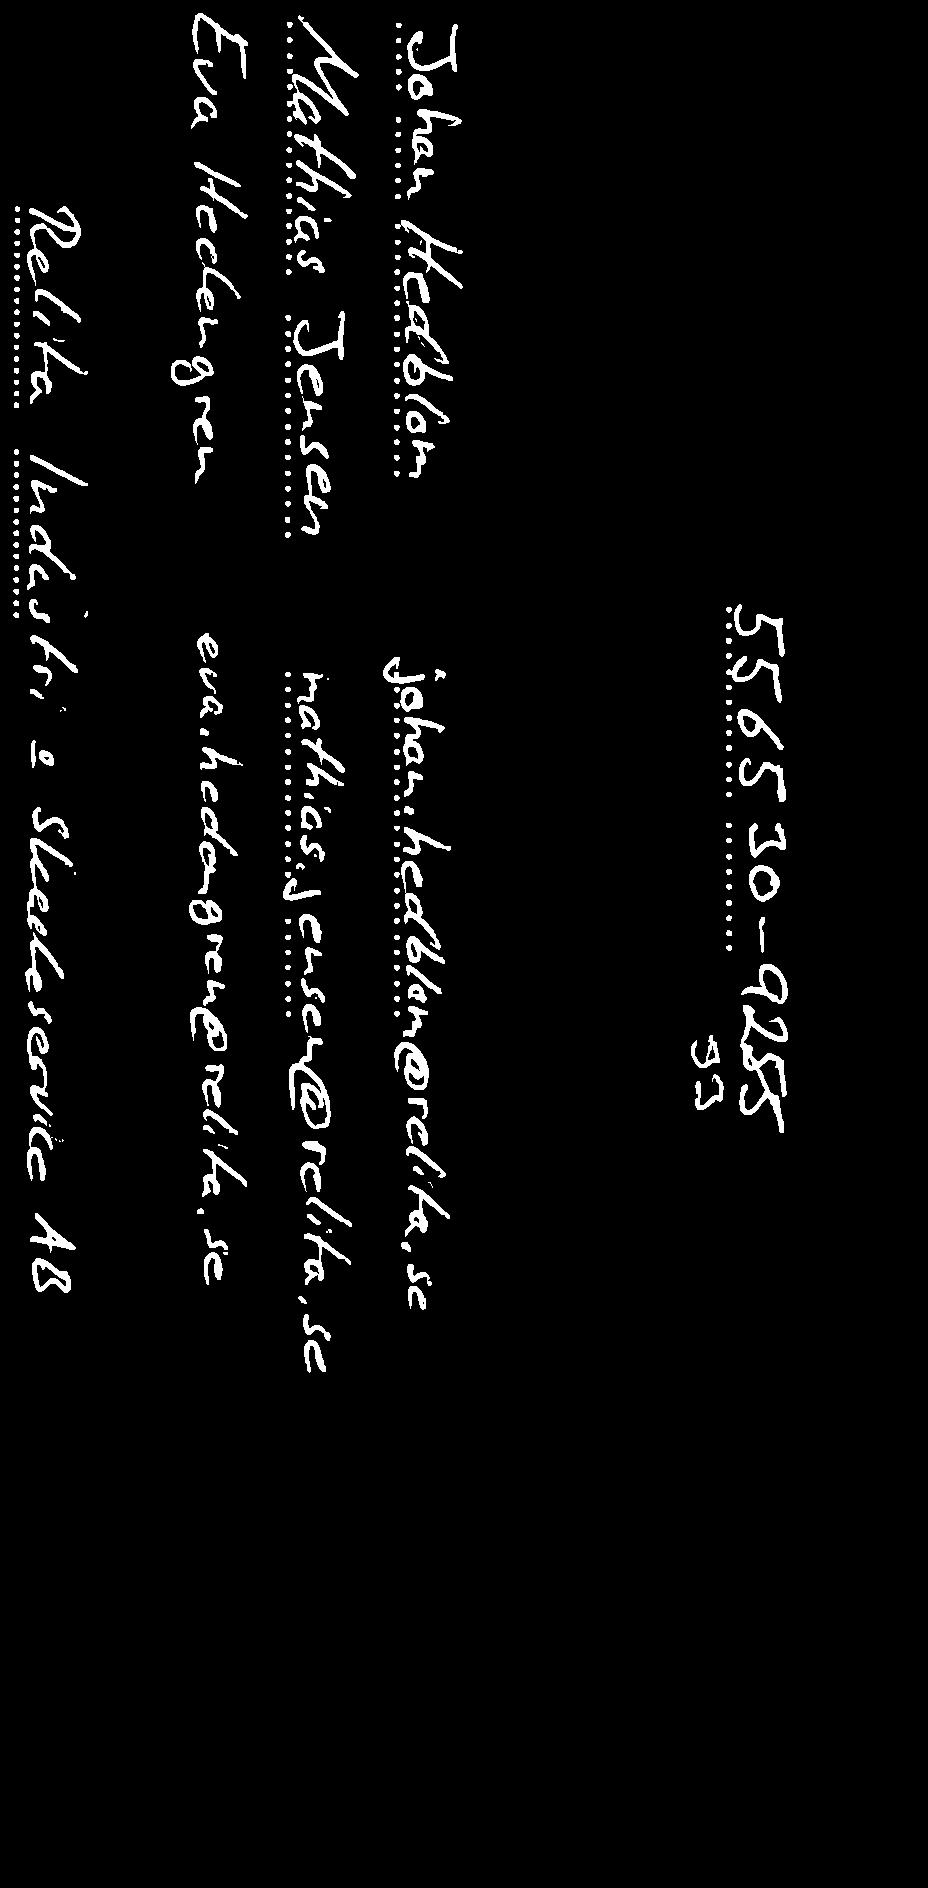 556530-9255
33
Johan Hedblom johan.hedblom@relita.se
Mathias Jensen mathias.jensen@relita.se
Eva Hedengren eva.hedengren@relita.se
Relita Industri o Skadeservice AB